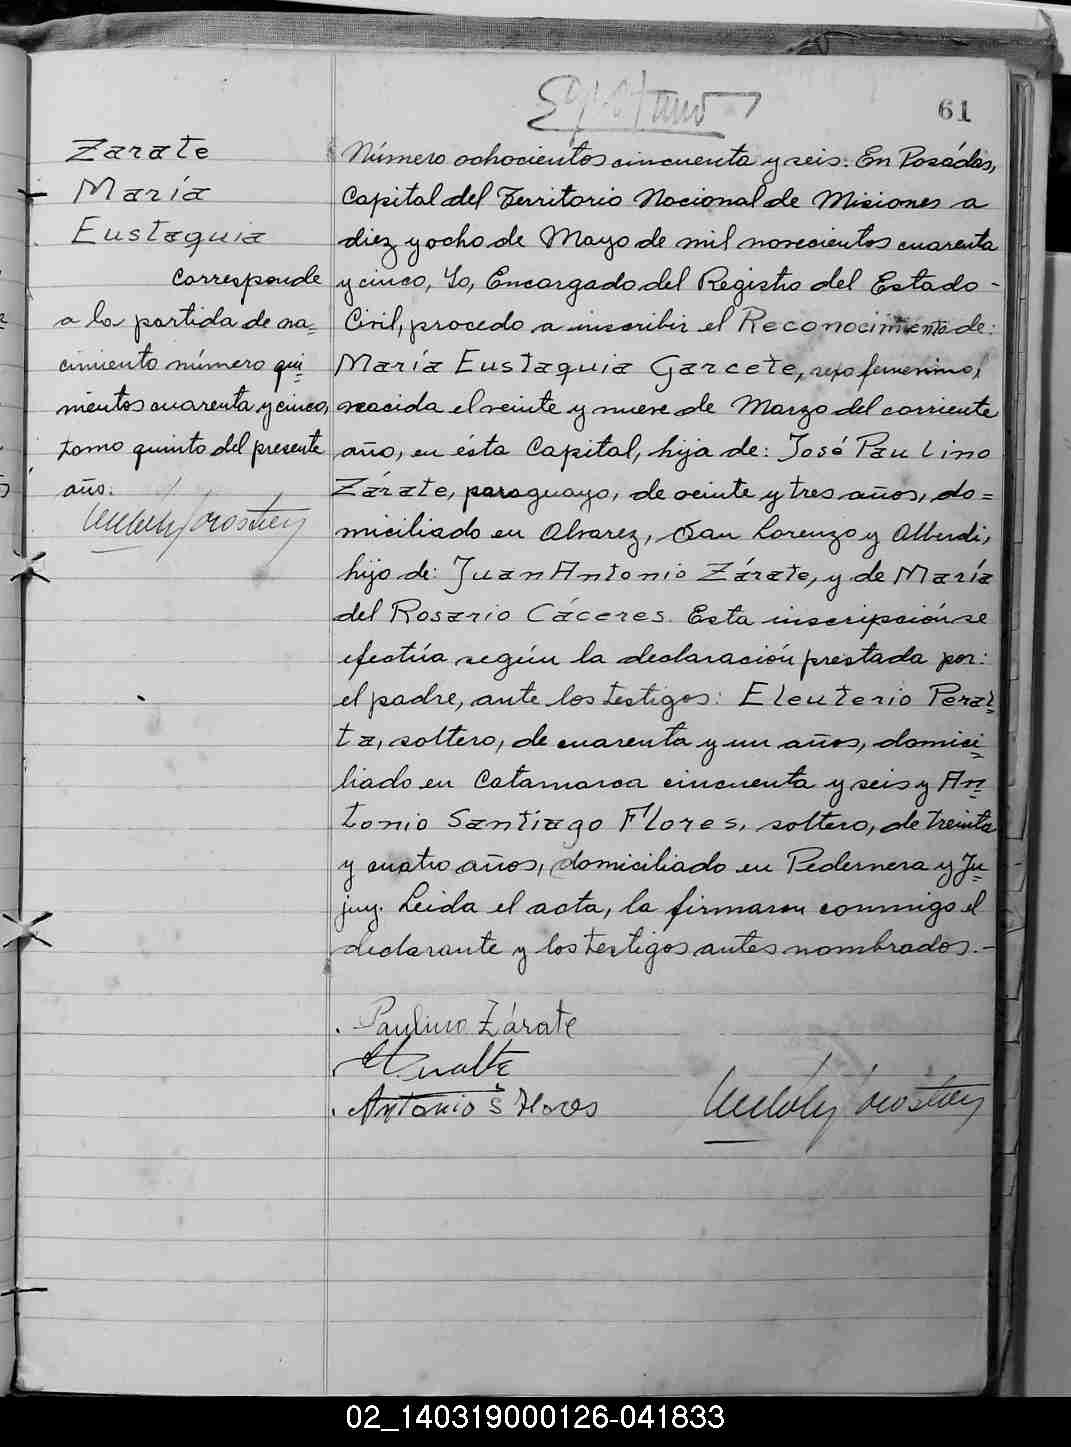 61
Zarate
María
Eustaquia
corresponde
a la partida de na=
cimiento número qui=
nientos cuarenta y cinco,
tomo quinto del presente
año.
Número ochocientos cincuenta y seis. En Posadas,
Capital del Territorio Nacional de Misiones a
diez y ocho de Mayo de mil novecientos cuarenta
y cinco, Yo, Encargado del Registro del Estado -
Civil, procedo a inscribir el Reconocimiento de:
María Eustaquia Garcete, sexo femenino,
nacida el veinte y nueve de Marzo del corriente
año, en ésta Capital, hija de: José Paulino
Zárate, paraguayo, de veinte y tres años, do=
miciliado en Alvarez, San Lorenzo y Alberdi,
hijo de: Juan Antonio Zárate, y de María
del Rosario Cáceres. Esta inscripción se
efectúa según la declaración prestada por:
el padre, ante los testigos: Eleuterio Peral=
ta, soltero, de cuarenta y un años, domici=
liado en Catamarca cincuenta y seis y An=
tonio Santiago Flores, soltero, de treinta
y cuatro años, domiciliado en Pedernera y Ju=
juy. Leida el acta, la firmaron conmigo el
declarante y los testigos antes nombrados.-
Paulino Zárate
Antonio S Flores
02_140319000126-041833